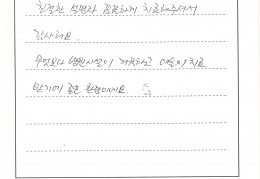 친절한 설명과 꼼꼼하게 치료해주셔서
감사해요.
무엇보다 병원시설이 깨끗하고 아늑이 치료
받기에 좋은 환경이에요.